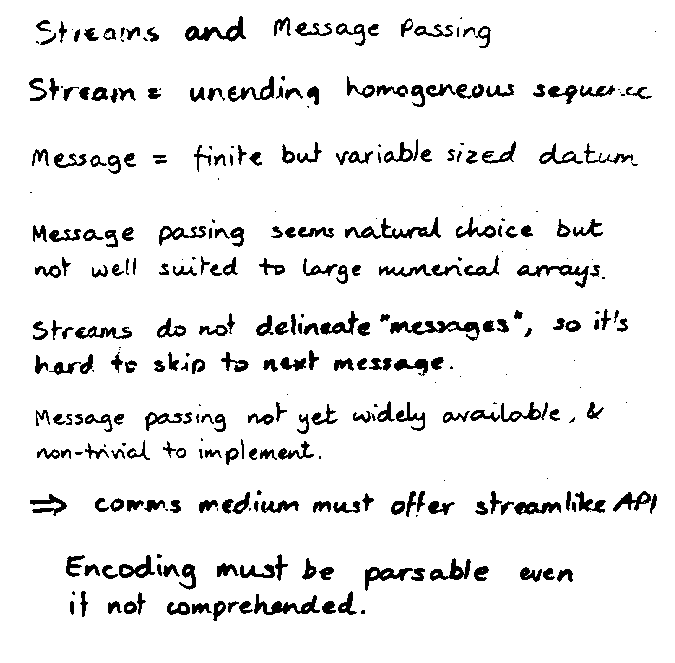 Streams and Message Passing
Stream = unending homogeneous sequence
Message = finite but variable sized datum
Message passing seems natural choice but
not well suited to large numerical arrays.
Streams do not delineate "messages", so it's
hard to skip to next message.
Message passing not yet widely available, &
non-trivial to implement.
⇒ comms medium must offer streamlike API
Encoding must be parsable even
if not comprehended.